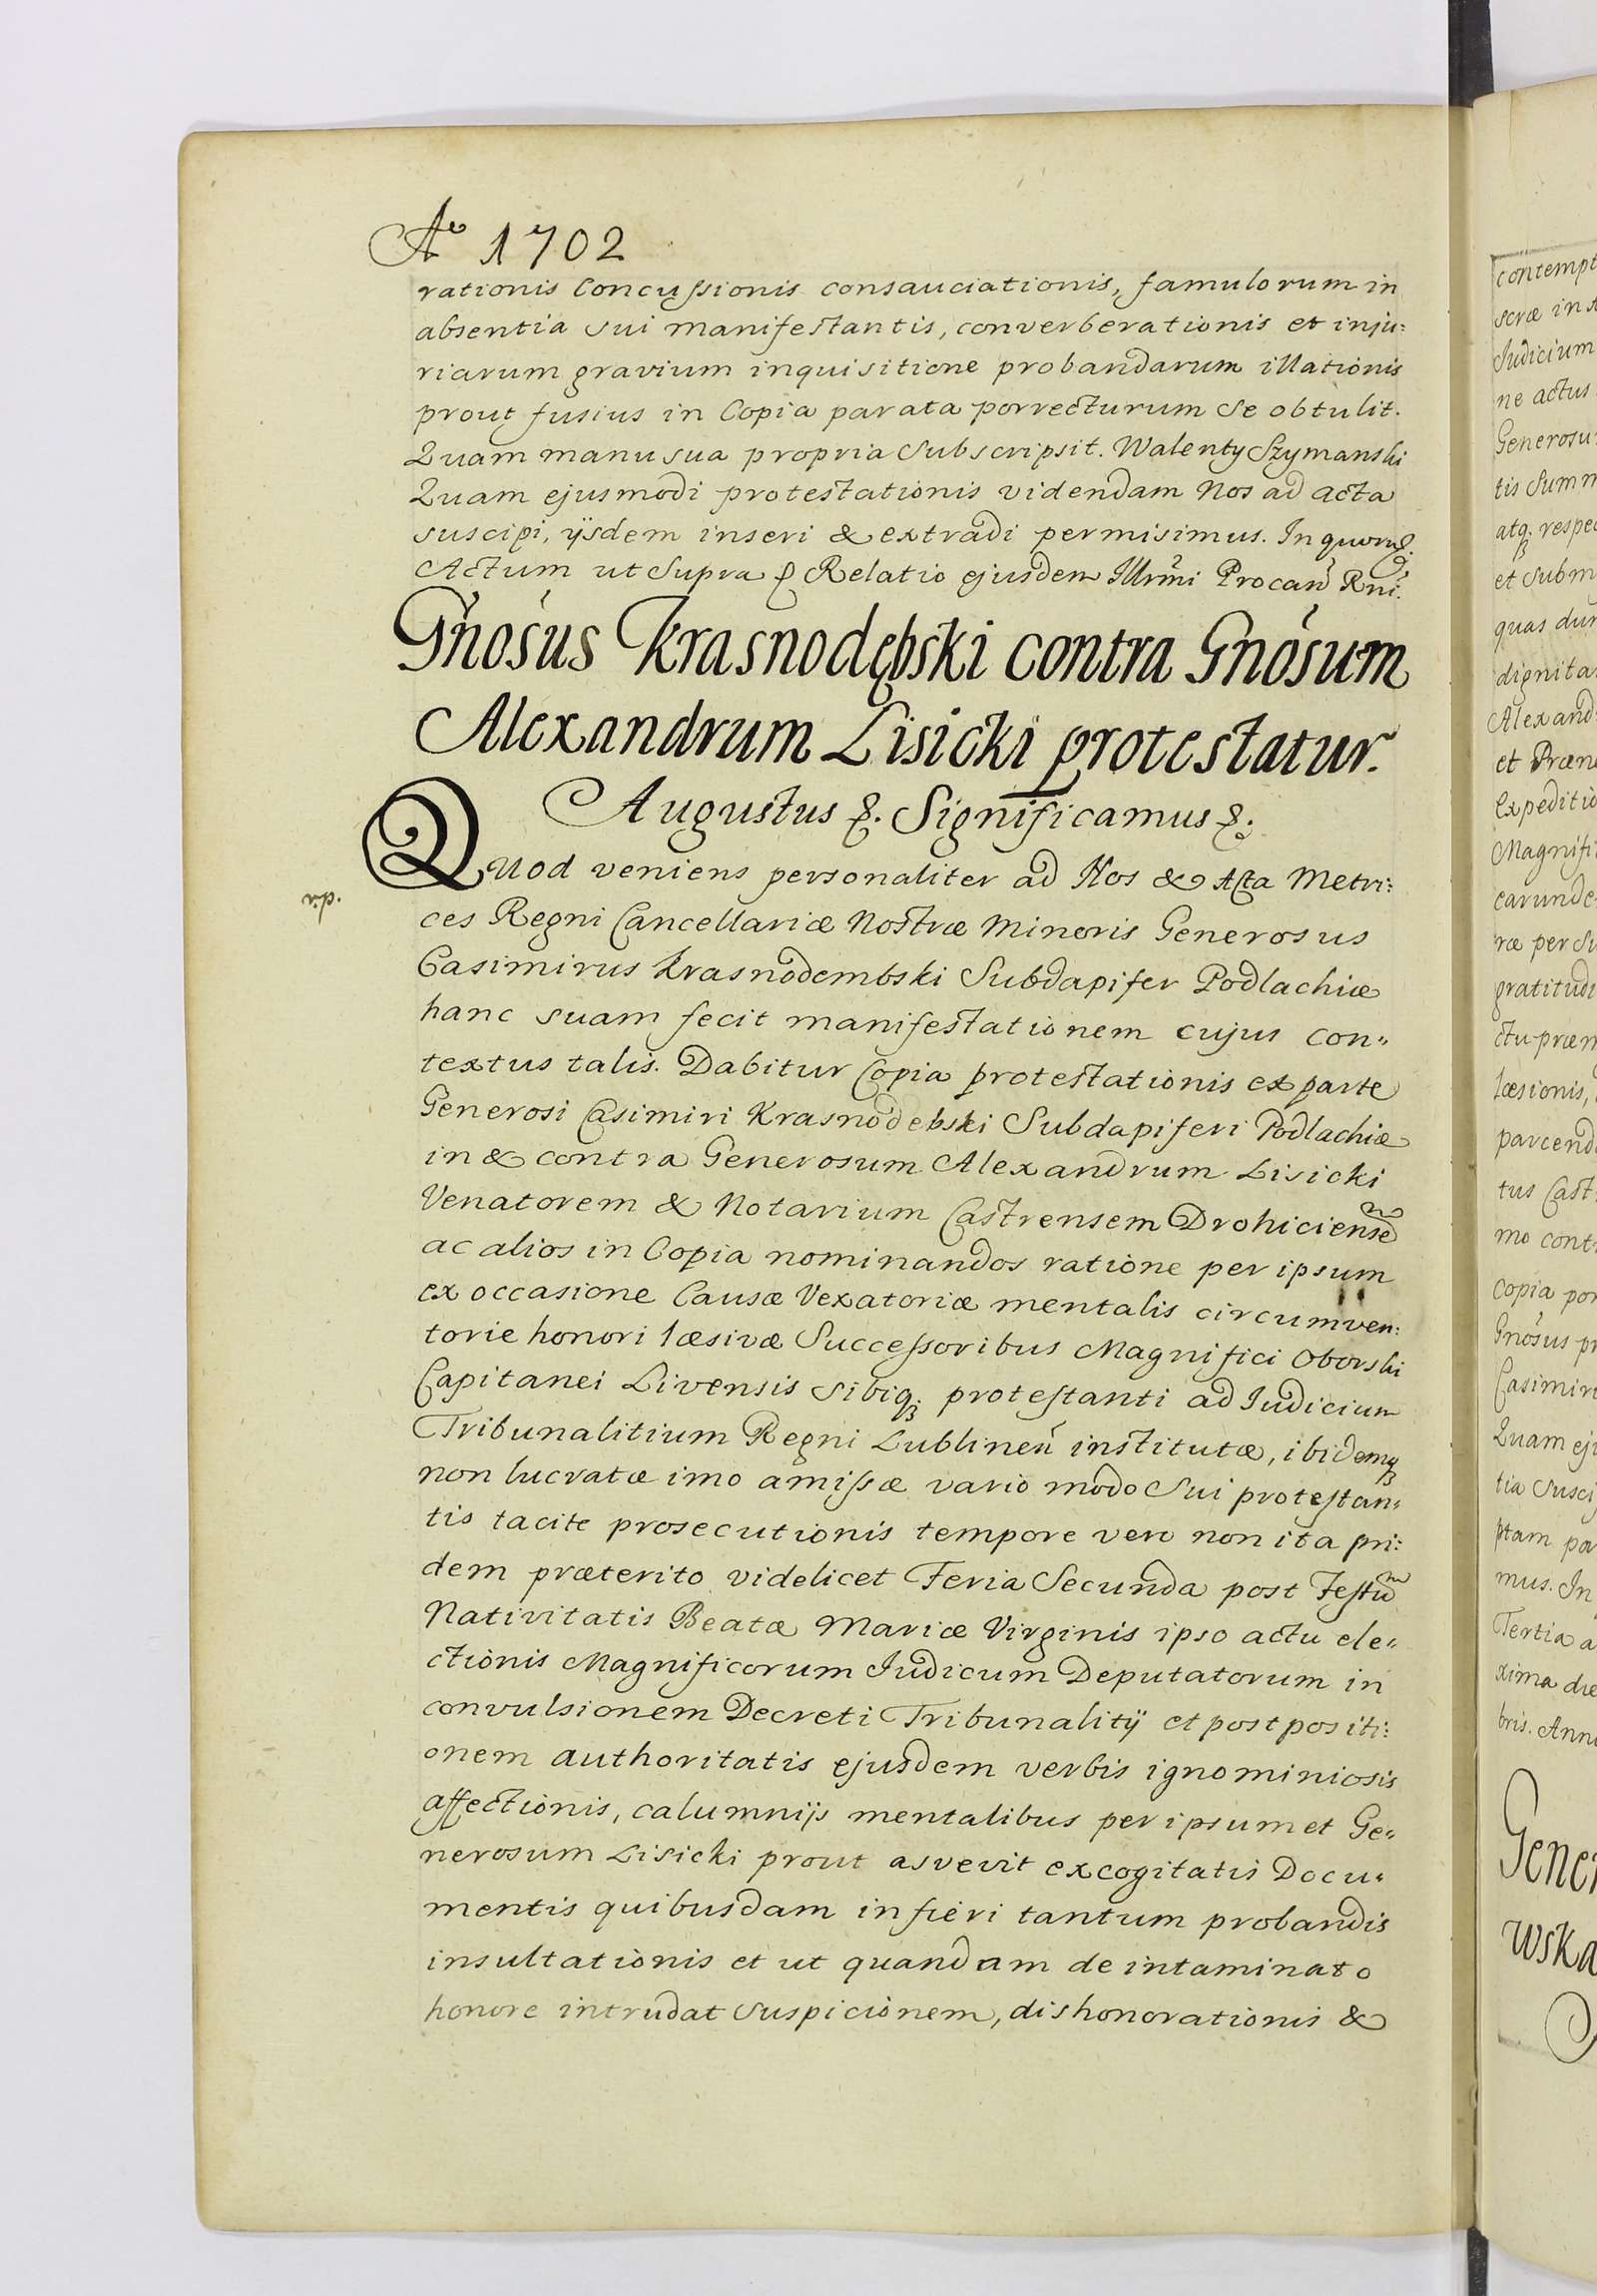 Aº 1702
rationis Concussionis consauciationis, famulorum in
absentia sui manifestantis, converberationis et inju:
riarum gravium inquisitione probandarum illationis
prout fusius in Copia parata porrecturum se obtulit.
Quam manu sua propria subscripsit. Walenty Szymanski
Quam ejusmodi protestationis videndam Nos ad acta
suscipi, ijsdem inseri & extradi permisimus. In quorũ &.
Actum ut Supra & Relatio ejusdem Illrm̃i Procan̄ Rn̄i.
Gnosus Krasnodębski contra Gnosum
Alexandrum Lisicki protestatur.
Augustus &. Significamus &.
Quod veniens personaliter ad Nos & Acta Metri:
ces Regni Cancellariæ Nostræ Minoris Generosus
Casimirus Krasnodembski Subdapifer Podlachiæ
hanc suam fecit manifestationem cujus con„
textus talis. Dabitur Copia protestationis ex parte
Generosi Casimiri Krasnodebski Subdapiferi Podlachiæ
in & contra Generosum Alexandrum Lisicki
Venatorem & Notarium Castrensem Drohiciensẽ
ac alios in Copia nominandos ratione per ipsum
ex occasione Causæ Vexatoriæ mentalis circumven:
torie honori læsivæ Successoribus Magnifici Oborski
Capitanei Livensis sibiq; protestanti ad Iudicium
Tribunalitium Regni Lublineñ institutæ, ibidemq;
non lucratæ imo amissæ vario modo Sui protestan„
tis tacite prosecutionis tempore vero non ita pri:
dem præterito videlicet Feria Secunda post Festũ
Nativitatis Beatæ Mariæ Virginis ipso actu ele„
ctionis Magnificorum Iudicum Deputatorum in
convulsionem Decreti Tribunalitij et postpositi:
onem authoritatis ejusdem verbis ignominiosis
affectionis, calumnijs mentalibus per ipsummet Ge„
nerosum Lisicki prout asvevit excogitatis Docu„
mentis quibusdam in fieri tantum probandis
insultationis et ut quandam de intaminato
honore intrudat suspicionem, dishonorationis &
contempt
Iudicium
ne actus
tis Summ
atq; respec
et subm
quas dur
dignita
Alexand
et Præn
Expeditio
Magnifi
earunde
ræ per
gratitudi
læsionis,
parcend
tus Cast
mo cont
Copia por
Gnosus pr
Casimiri
Quam ej
tia susci
ptam pa
mus. In
Tertia a
xima die
bris. Ann
Gener
wska